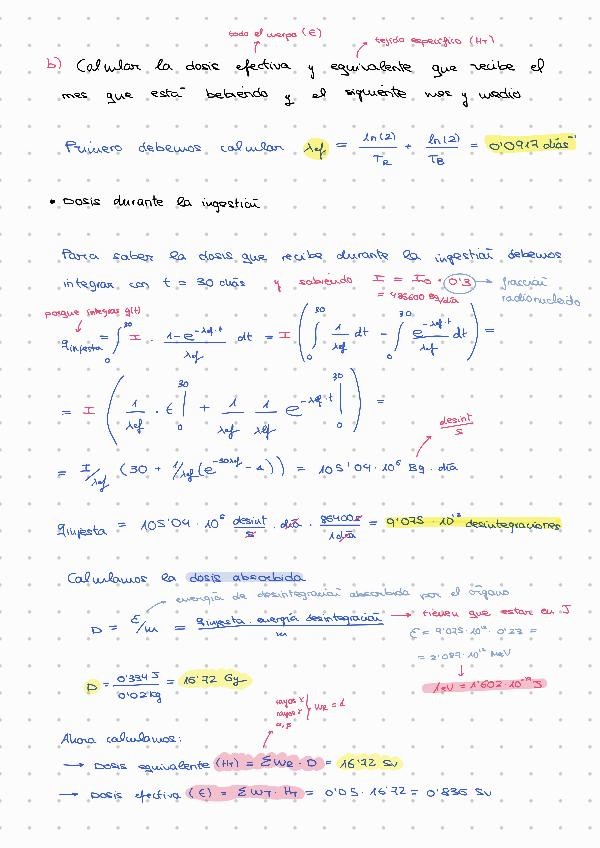 todo el cuerpo (E)
tejido específico (HT)
b) Calcular la dosis efectiva y equivalente que recibe el
mes que está bebiendo y el siguiente mes y medio
Primero debemos calcular λef = ln(2)/TR + ln(2)/TB = 0'0917 días⁻¹
• Dosis durante la ingestión
Para saber la dosis que recibe durante la ingestión debemos
integrar con t = 30 días y sabiendo I = I0 · 0'3 → fracción
radionucleido
= 485600 Bq/día
porque integras q(t)
qingesta = ∫₀³⁰ I · (1-e^(-λef·t))/λef dt = I (∫₀³⁰ 1/λef dt - ∫₀³⁰ e^(-λef·t)/λef dt) =
= I (1/λef · t |₀³⁰ + 1/λef 1/λef e^(-λef·t) |₀³⁰) =
desint/s
= I/λef (30 + 1/λef (e^(-30λef) - 1)) = 105'04 · 10⁶ Bq · día
qingesta = 105'04 · 10⁶ desint/s · día · 86400s/1día = 9'075 · 10¹² desintegraciones
Calculamos la dosis absorbida
energía de desintegración absorbida por el órgano
D = E/m = qingesta · energía desintegración/m → tienen que estar en J
E = 9'075 · 10¹² · 0'23 =
= 2'087 · 10¹² MeV
D = 0'334 J/0'02 kg = 16'72 Gy
1eV = 1'602 · 10⁻¹⁹ J
rayos X
rayos γ
α, β
WR = 1
Ahora calculamos:
→ Dosis equivalente (HT) = ΣWR · D = 16'72 Sv
→ Dosis efectiva (E) = ΣWT · HT = 0'05 · 16'72 = 0'836 Sv